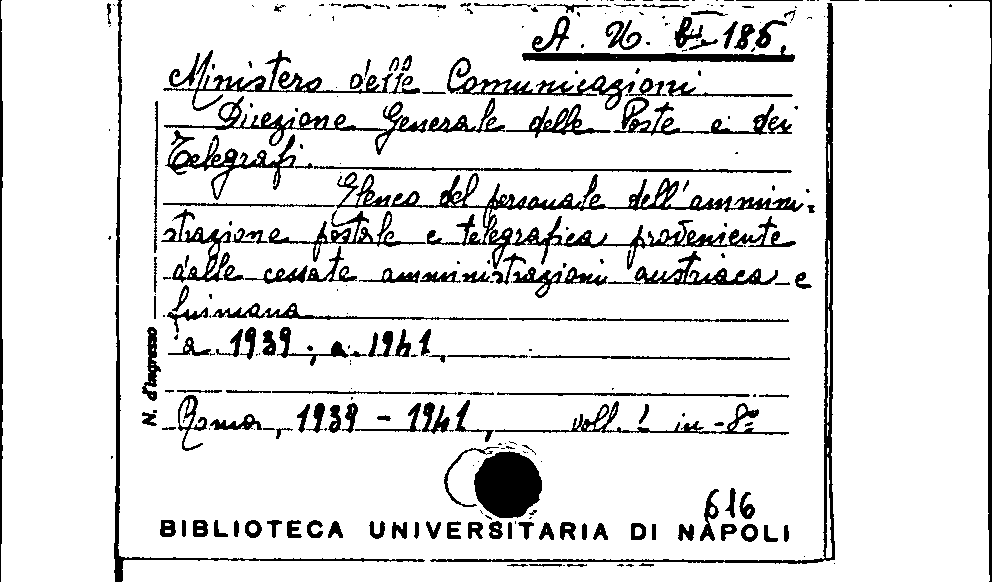 A. U. bI 185.
Ministero delle Comunicazioni.
Direzione Generale delle Poste e dei
Telegrafi.
Elenco del personale dell'ammini-
strazione postale e telegrafica proveniente
dalle cessate amministrazioni austriaca e
fiumana
a. 1939; a. 1941.
Roma, 1939 - 1941, voll. ! in-8º
N. d'Ingresso
616
BIBLIOTECA UNIVERSITARIA DI NAPOLI